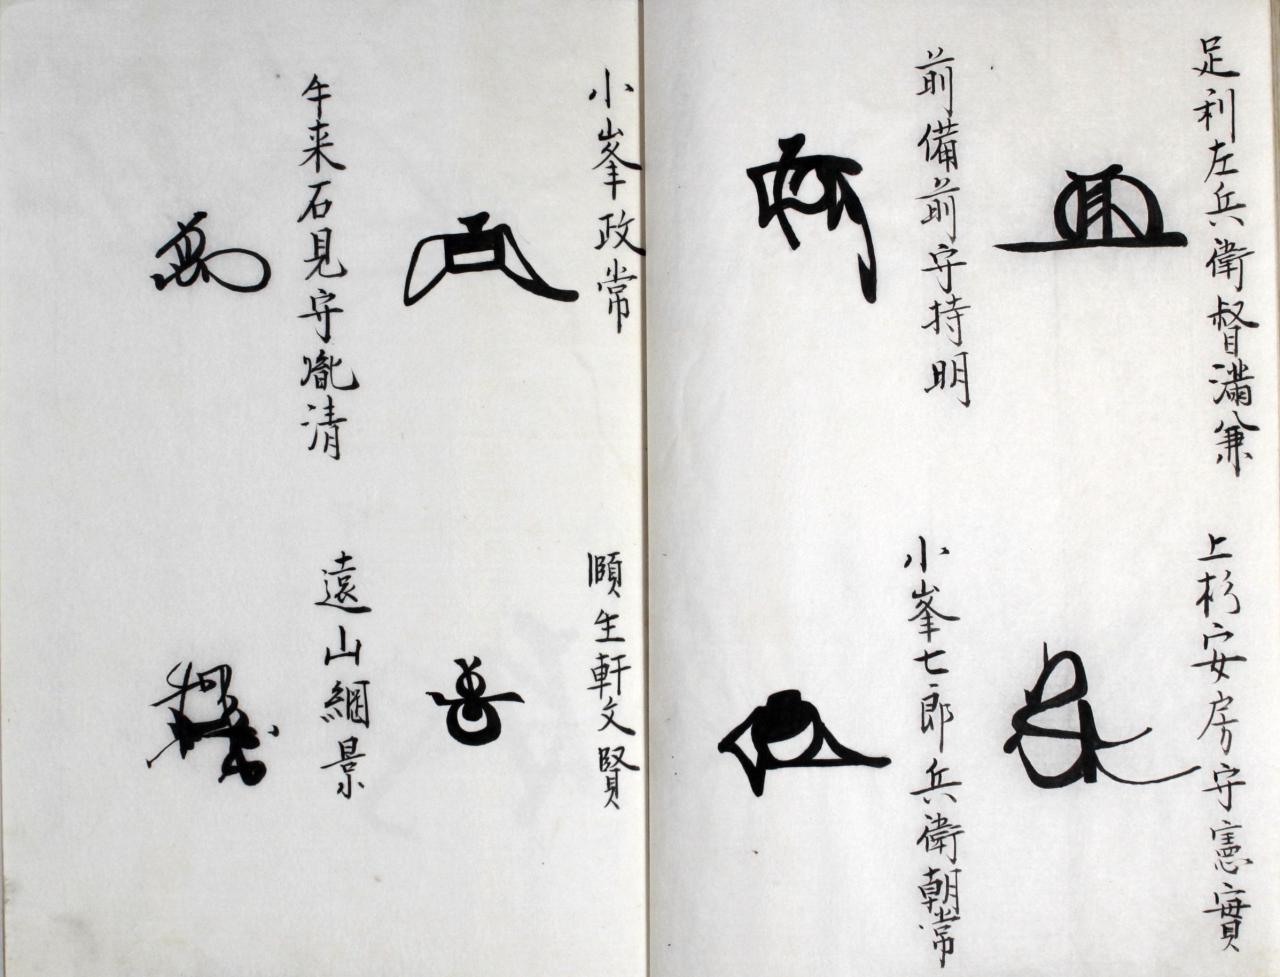 足利左兵衛督滿兼
上杉安房守憲實
前備前守持明
小峯七郎兵衛朝常
小峯政常
頤生軒文賢
牛来石見守胤清
遠山綱景